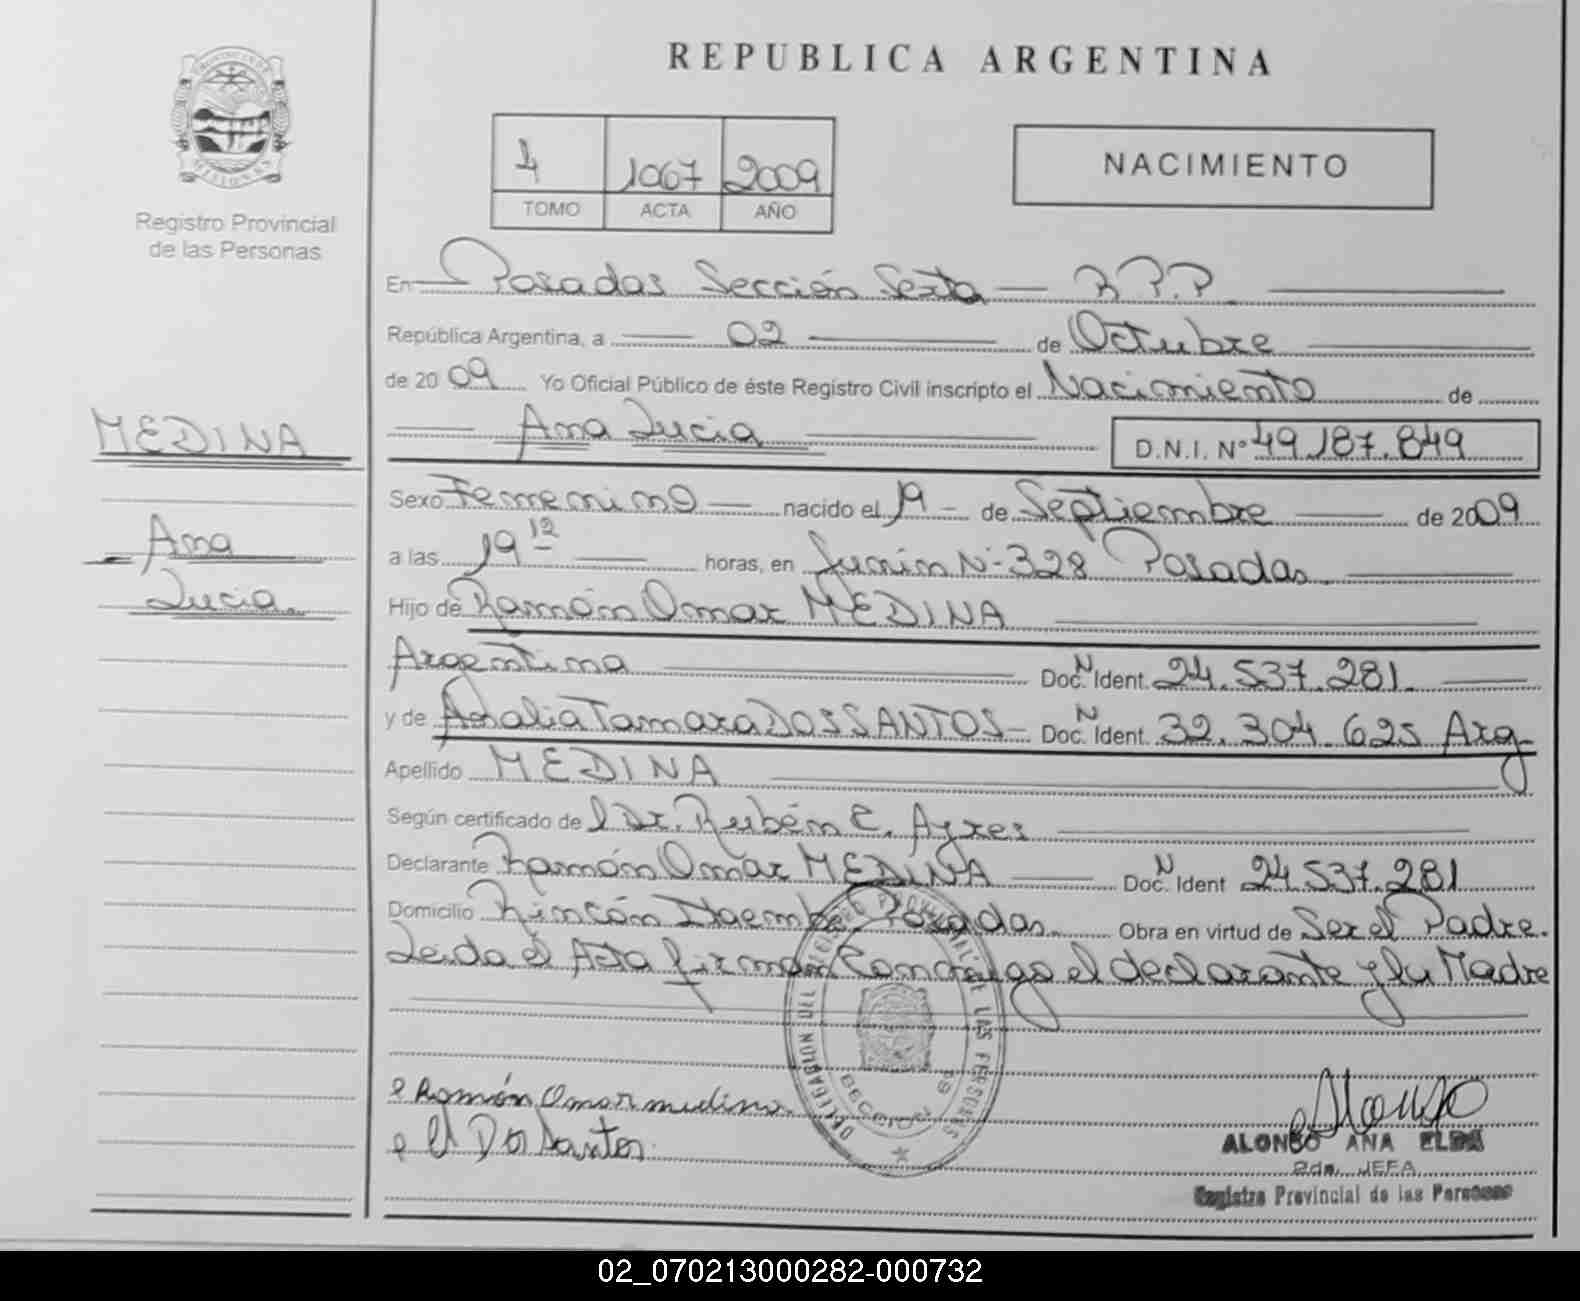 REPUBLICA ARGENTINA
PROVINCIA DE
MISIONES
Registro Provincial
de las Personas
4 1067 2009
TOMO ACTA AÑO
NACIMIENTO
En Posadas Sección Sexta — R P.P.
República Argentina, a — 02 — de Octubre
de 2009 Yo Oficial Público de éste Registro Civil inscripto el Nacimiento de
MEDINA
— Ana Lucia — D.N.I. Nº 49.187.849
Sexo Femenino — nacido el 19 — de Septiembre — de 2009
Ana
a las 19 12 — horas, en Junín Nº 328 Posadas. —
Lucia.
Hijo de Ramón Omar MEDINA —
Argentina — Doc. N Ident. 24.537.281. —
y de Analia Tamara DOS SANTOS — Doc. N Ident. 32.304.625 Arg
Apellido MEDINA —
Según certificado de l Dr. Rubén C. Ayres —
Declarante Ramón Omar MEDINA — Doc. N Ident 24.537.281
Domicilio Rincón Itaembe Posadas. Obra en virtud de Ser el Padre.
Leida el Acta firman conmigo el declarante y la Madre
DELEGACION DEL REGISTRO PROVINCIAL DE LAS PERSONAS
SECCION 6ª
Ramón Omar medina.
Dos Santos.
Alonso
ALONSO ANA ELBA
2da. JEFA
Registro Provincial de las Personas
02_070213000282-000732